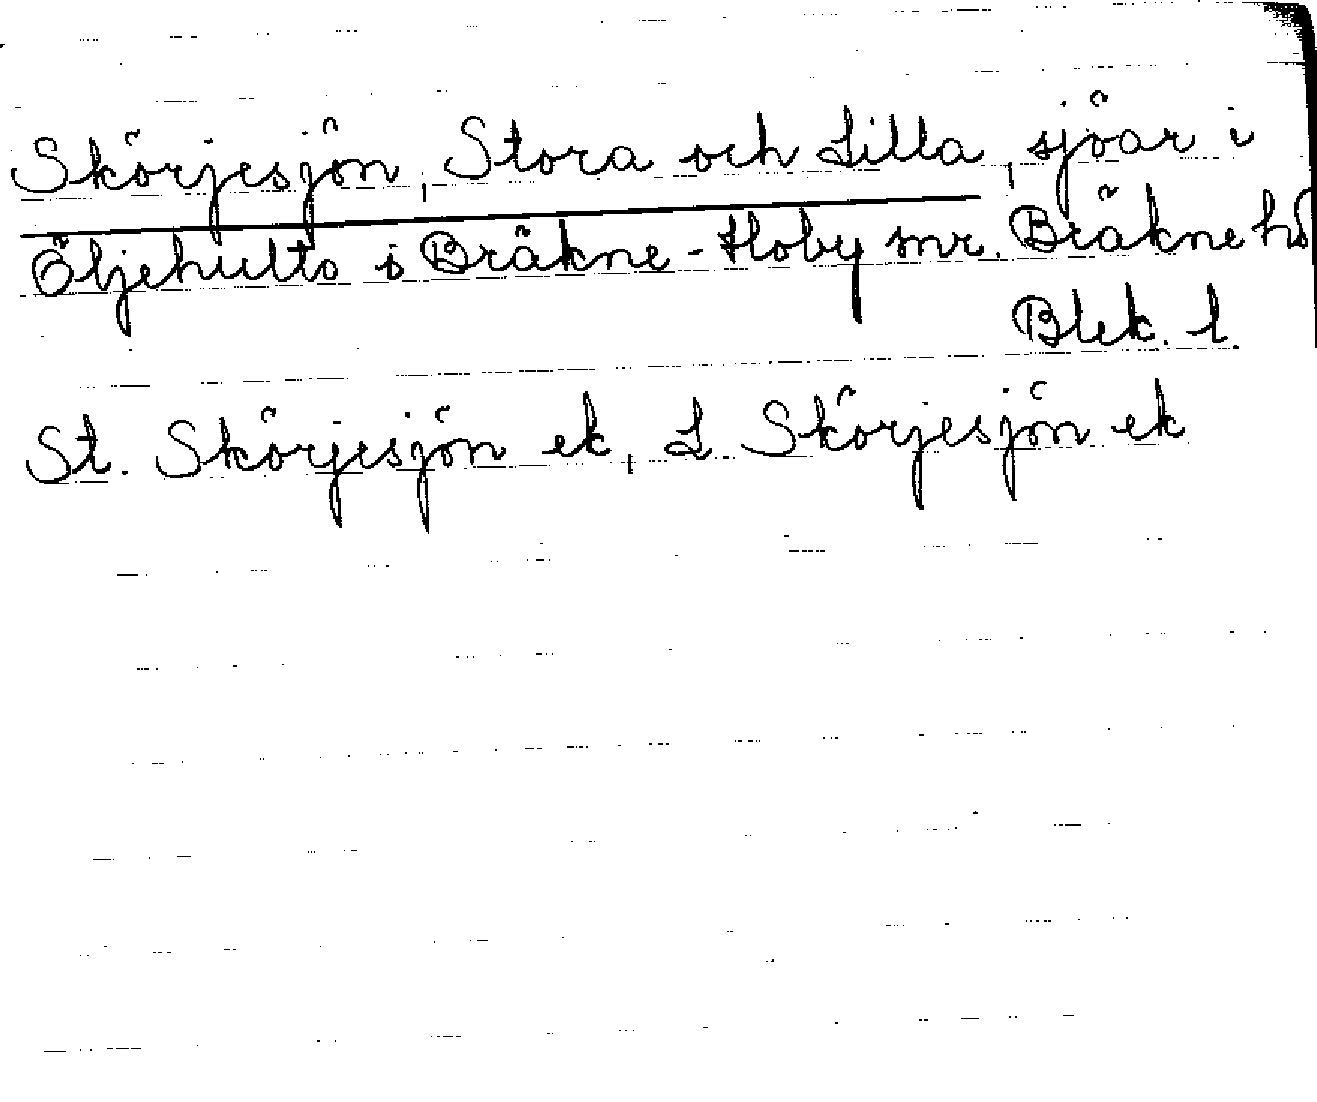 Skörjesjön, Stora och Lilla, sjöar i
Öljehults o Bräkne-Hoby snr. Bräkne hd
Blek. l.
St. Skörjesjön ek, L Skörjesjön ek